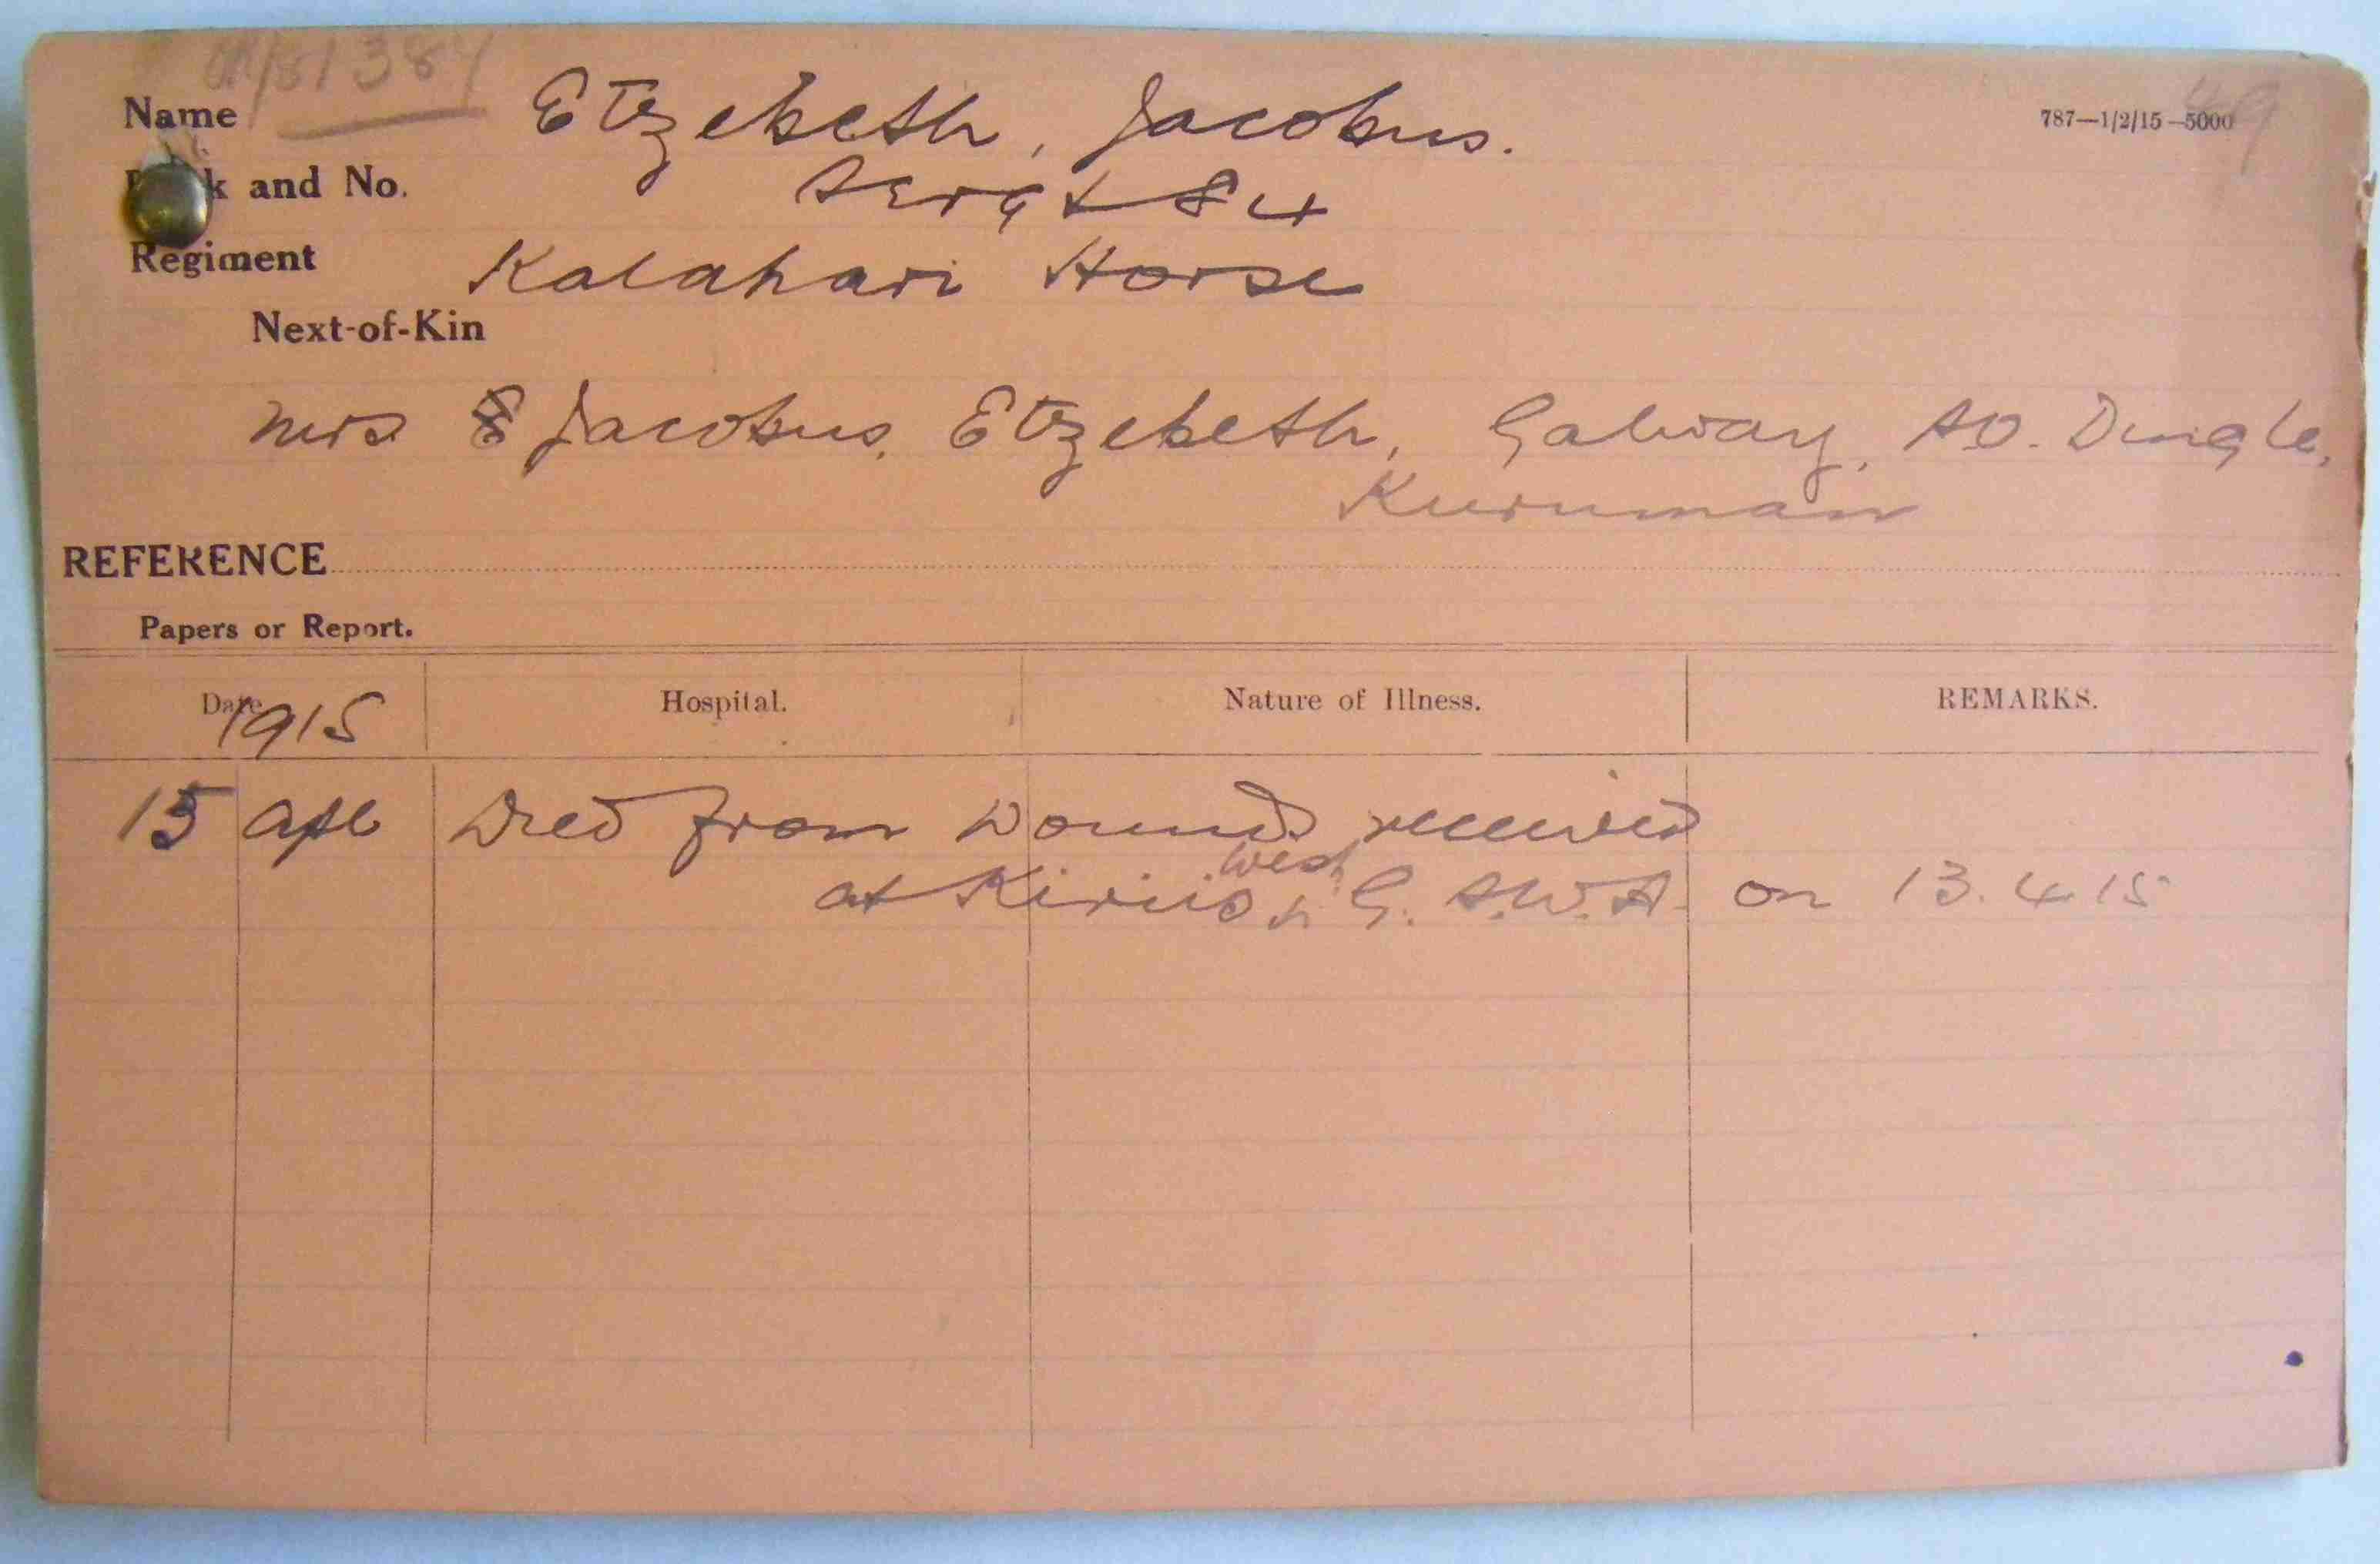 81384
Name Etzebeth, Jacobus. 787—1/2/15—5000
and No. Sergt 84
Regiment Kalahari Horse
Next-of-Kin
Mrs Jacobus, Etzebeth, Galway, P.O. Dingle,
Kuruman
REFERENCE
Papers or Report.
Date 1915 Hospital. Nature of Illness. REMARKS.
15 Apl Died from wounds received
west
at G. S.W.A. on 13.4.15